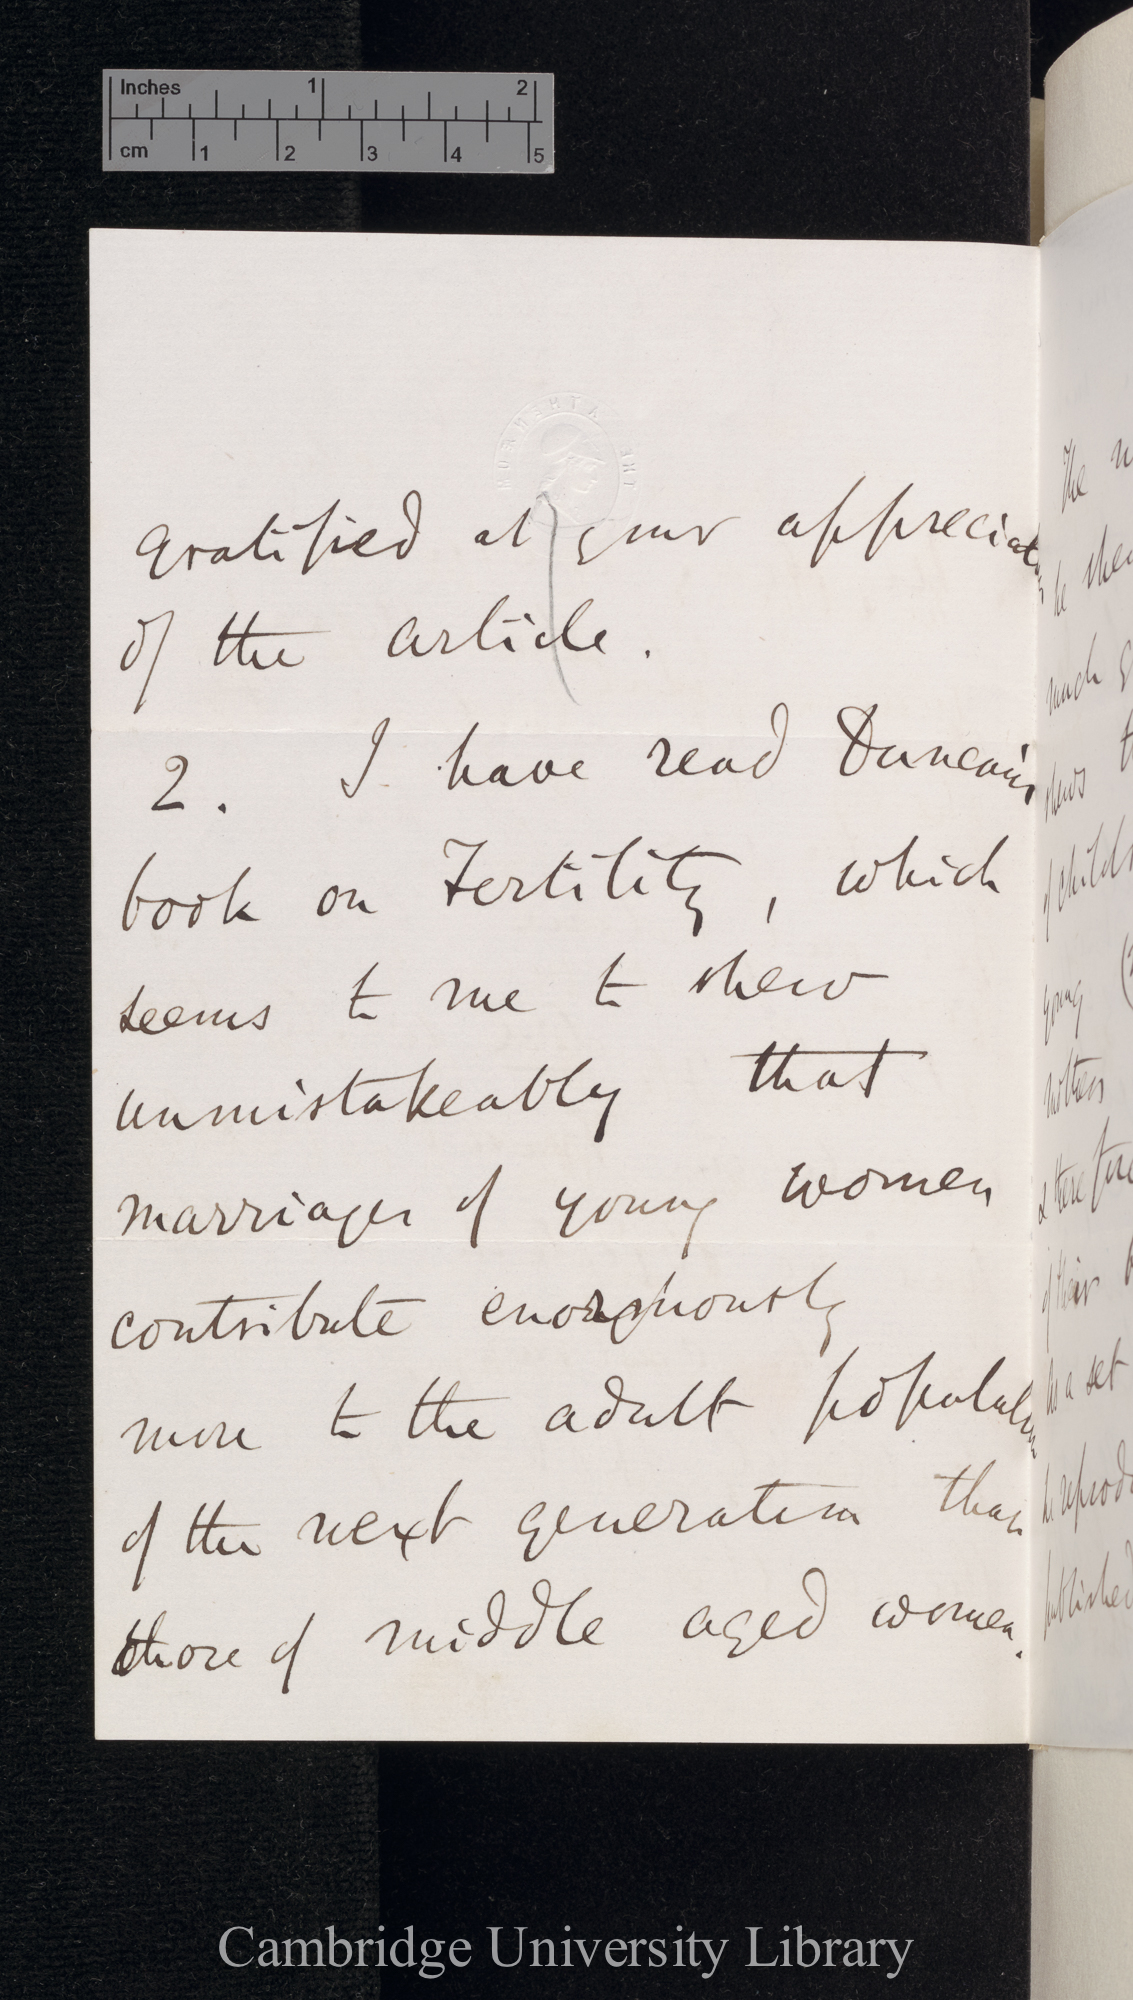 Inches 1 2
cm 1 2 3 4 5
THE ATHENÆUM
gratified at your appreciation
of the article.
2. I have read Duncan's
book on Fertility, which
seems to me to shew
unmistakeably that
marriages of young women
contribute enormously
more to the adult population
of the next generation than
those of middle aged women.
The
he shew
much
shews
of child
young
mothers
& therefore
of their
as a set
he reprod
published
Cambridge University Library